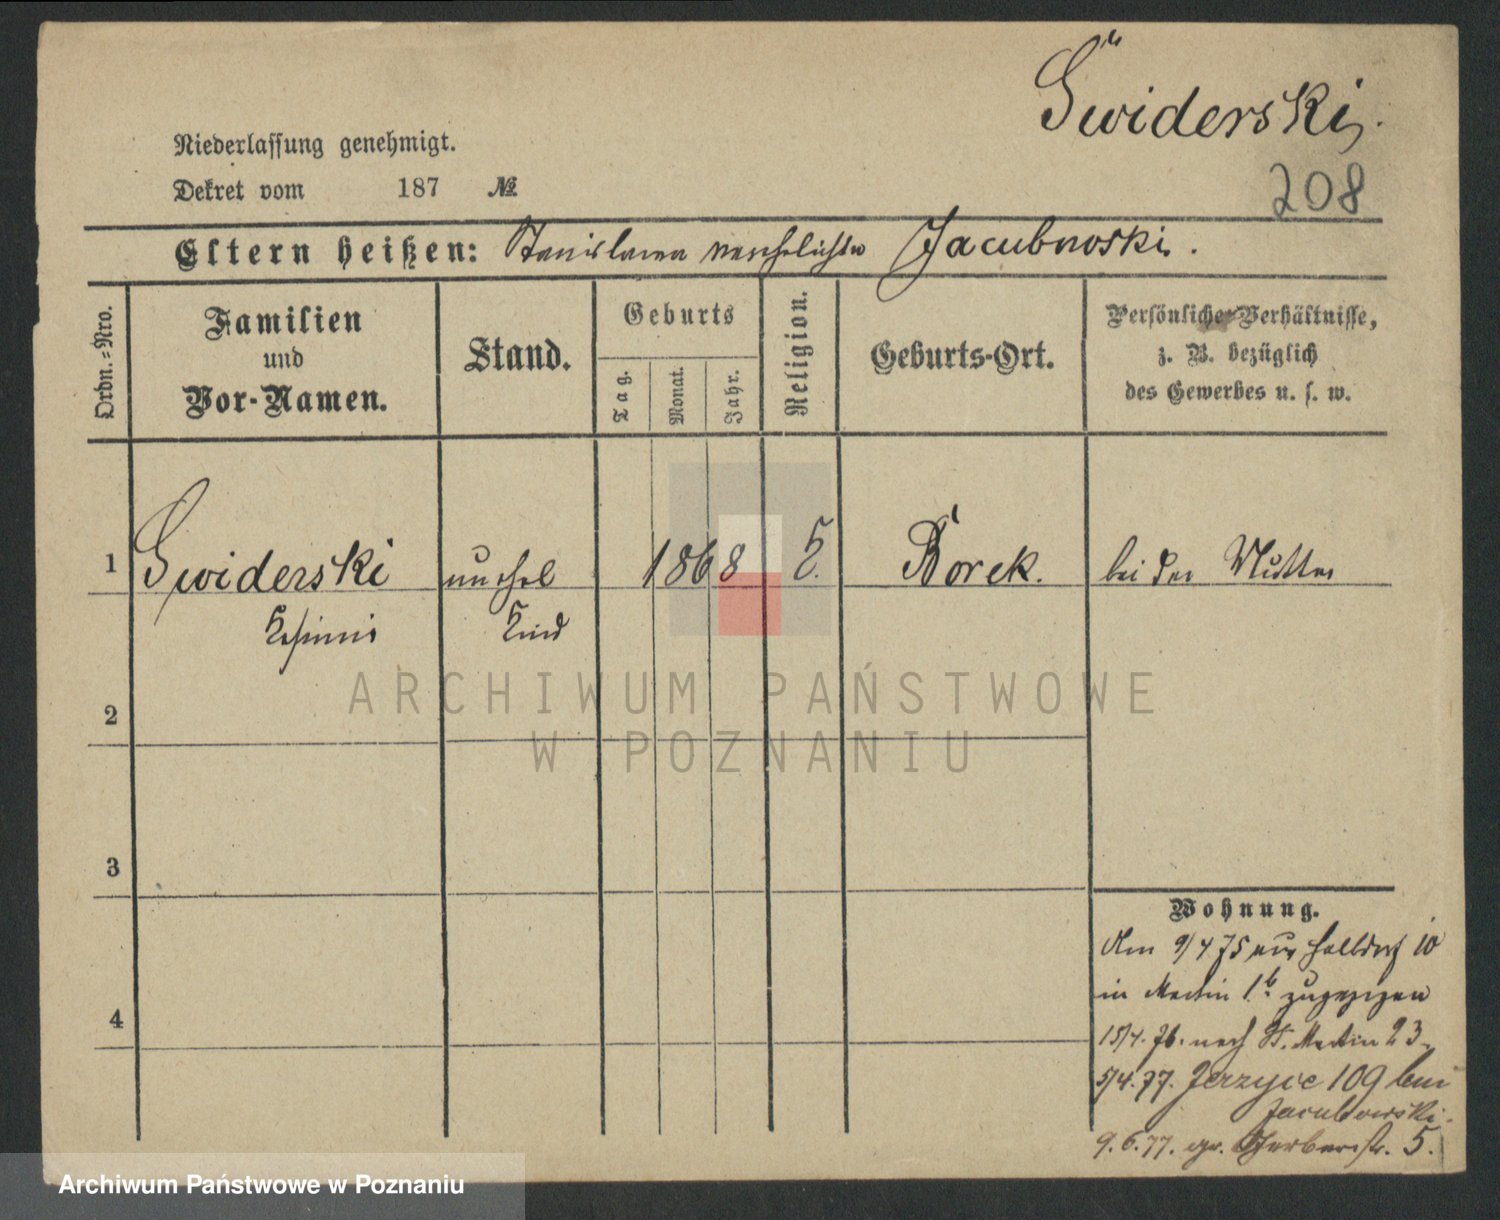 Świderski.
208
Niederlassung genehmigt.
Dekret vom 187 №
Eltern heißen: Stanislawa verehelichte Jacubowski.
Ordn.=Nro.
Familien
und
Vor-Namen.
Stand.
Geburts
Tag.
Monat.
Jahr.
Religion.
Geburts-Ort.
Persönliche Verhältnisse,
z. B. bezüglich
des Gewerbes u. s. w.
1 Swiderski unehel 1868 k. Borek. bei der Mutter
Kasimir Kind
2
3
4
Wohnung.
Am 9/4 75 aus Halldorf 10
in Martin 1b. zugezogen
15/4. 76. nach St. Martin 23.
5/4. 77. Jerzyce 109 bei
Jacubowski.
9.6.77. gr. Gerberstr. 5.
ARCHIWUM PAŃSTWOWE
W POZNANIU
Archiwum Państwowe w Poznaniu